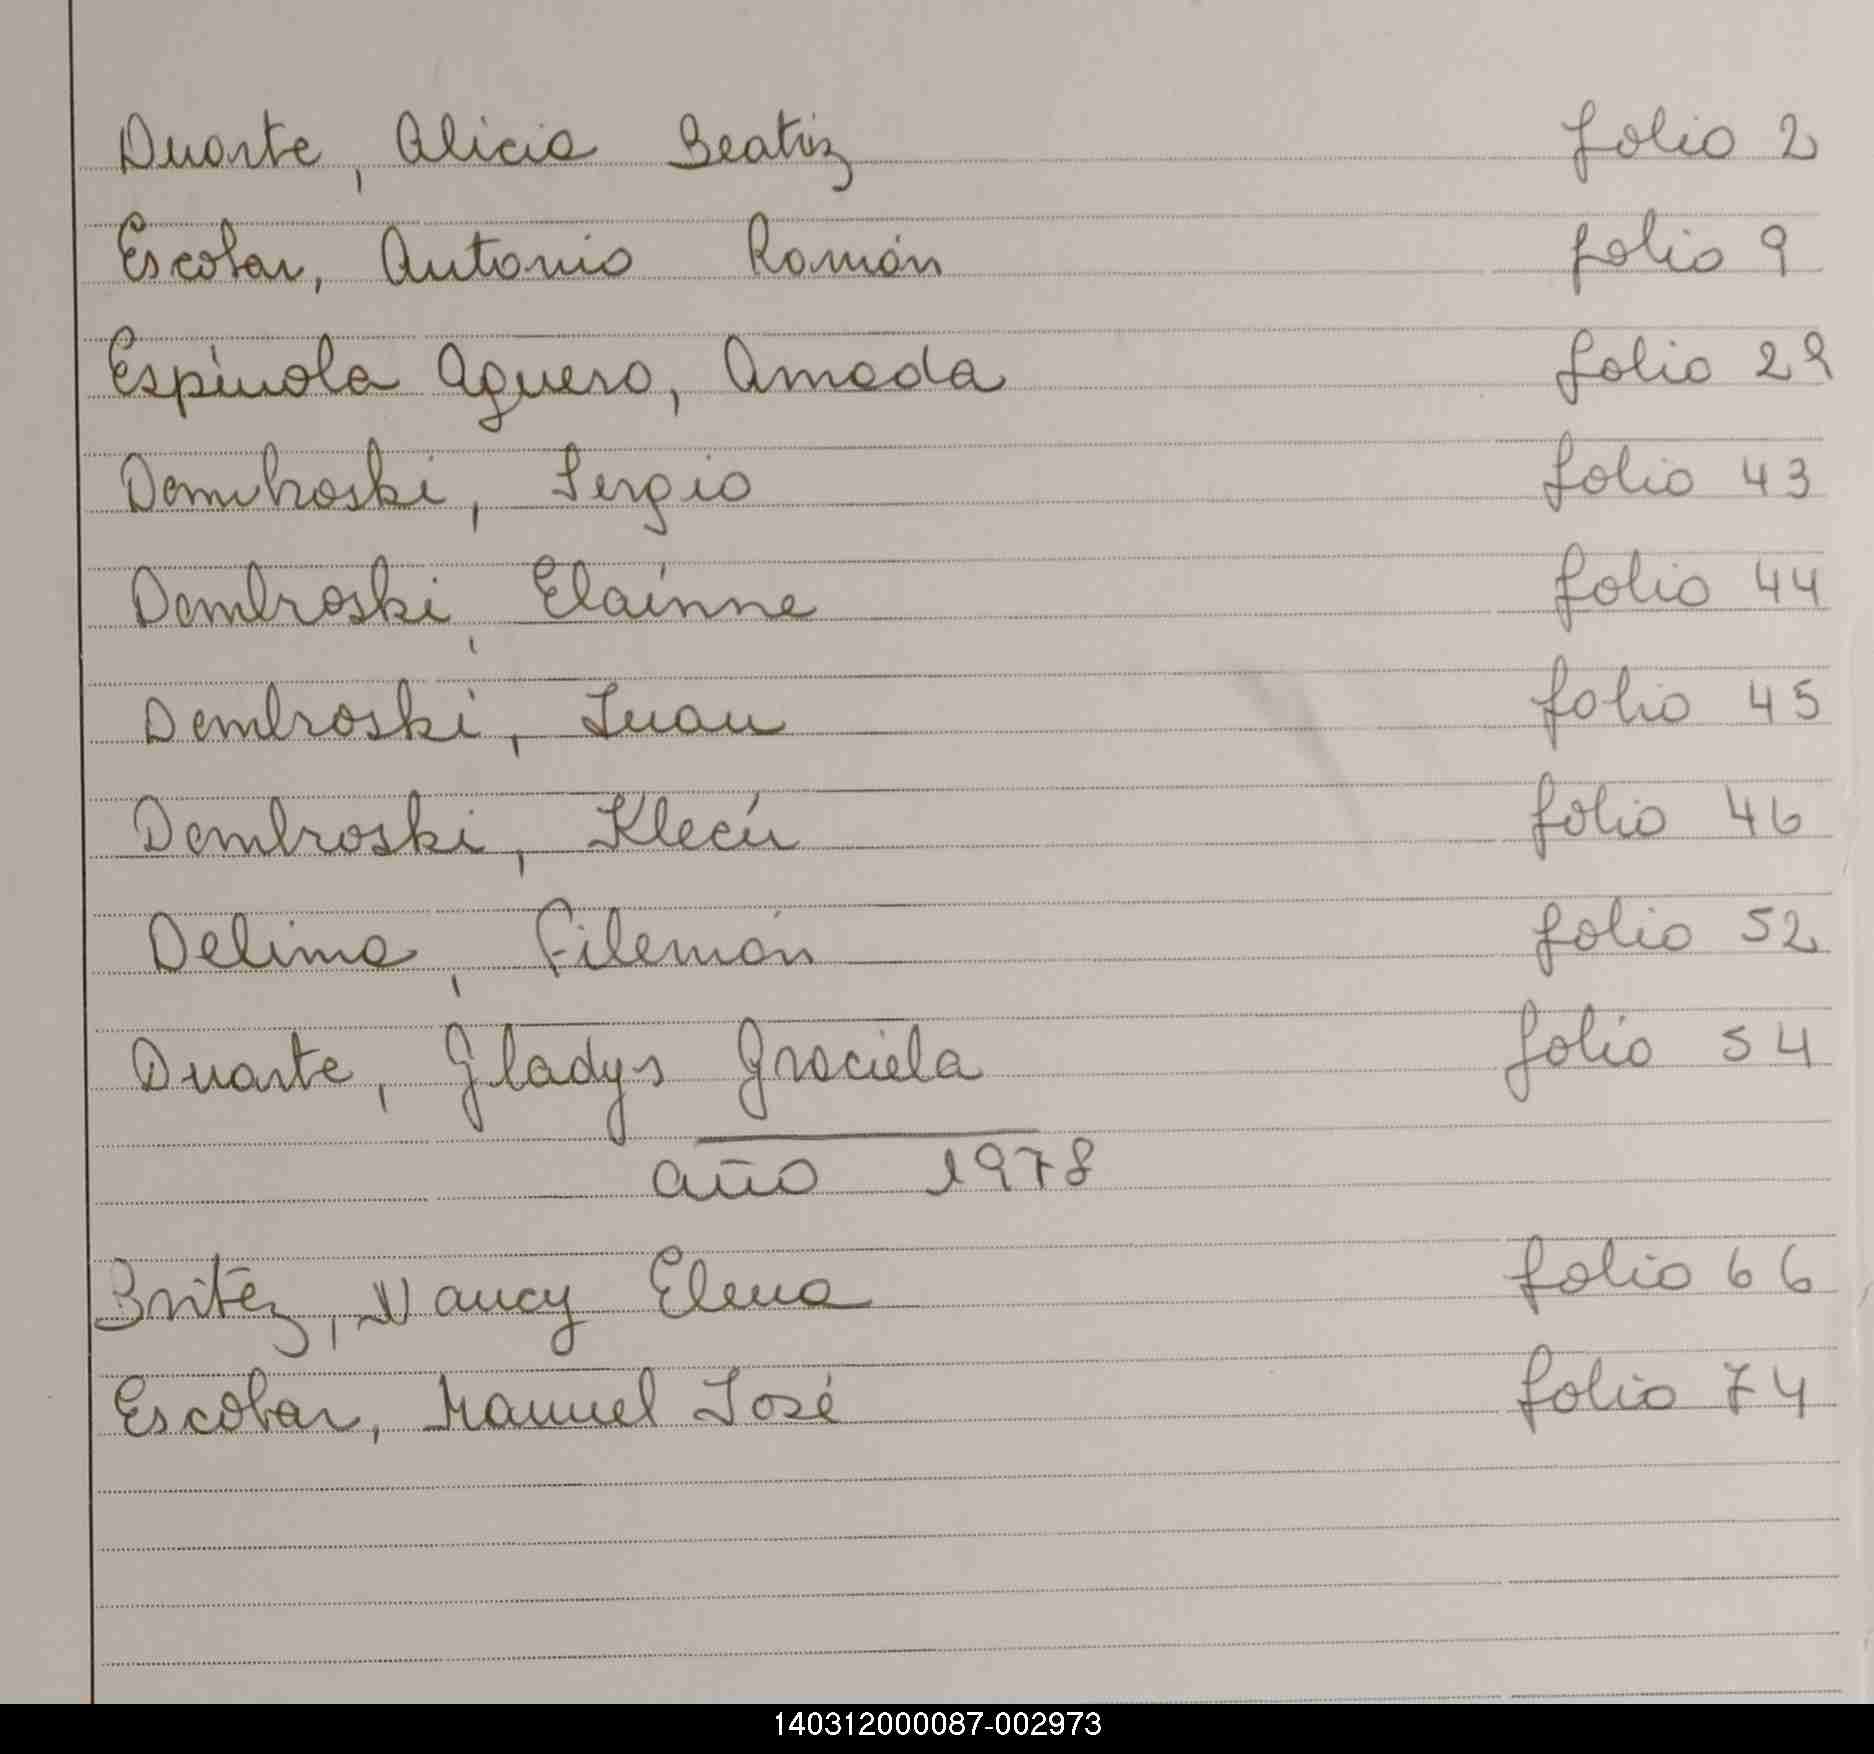 Duarte, Alicia Beatriz folio 2
Escobar, Antonio Román folio 9
Espínola Aguero, Amada folio 29
Dembroski, Sergio folio 43
Dembroski, Elainne folio 44
Dembroski, Juan folio 45
Dembroski, folio 46
Delima, Filemón folio 52
Duarte, Gladys Graciela folio 54
año 1978
Britez, Nancy Elena folio 66
Escobar, Manuel José folio 74
140312000087-002973